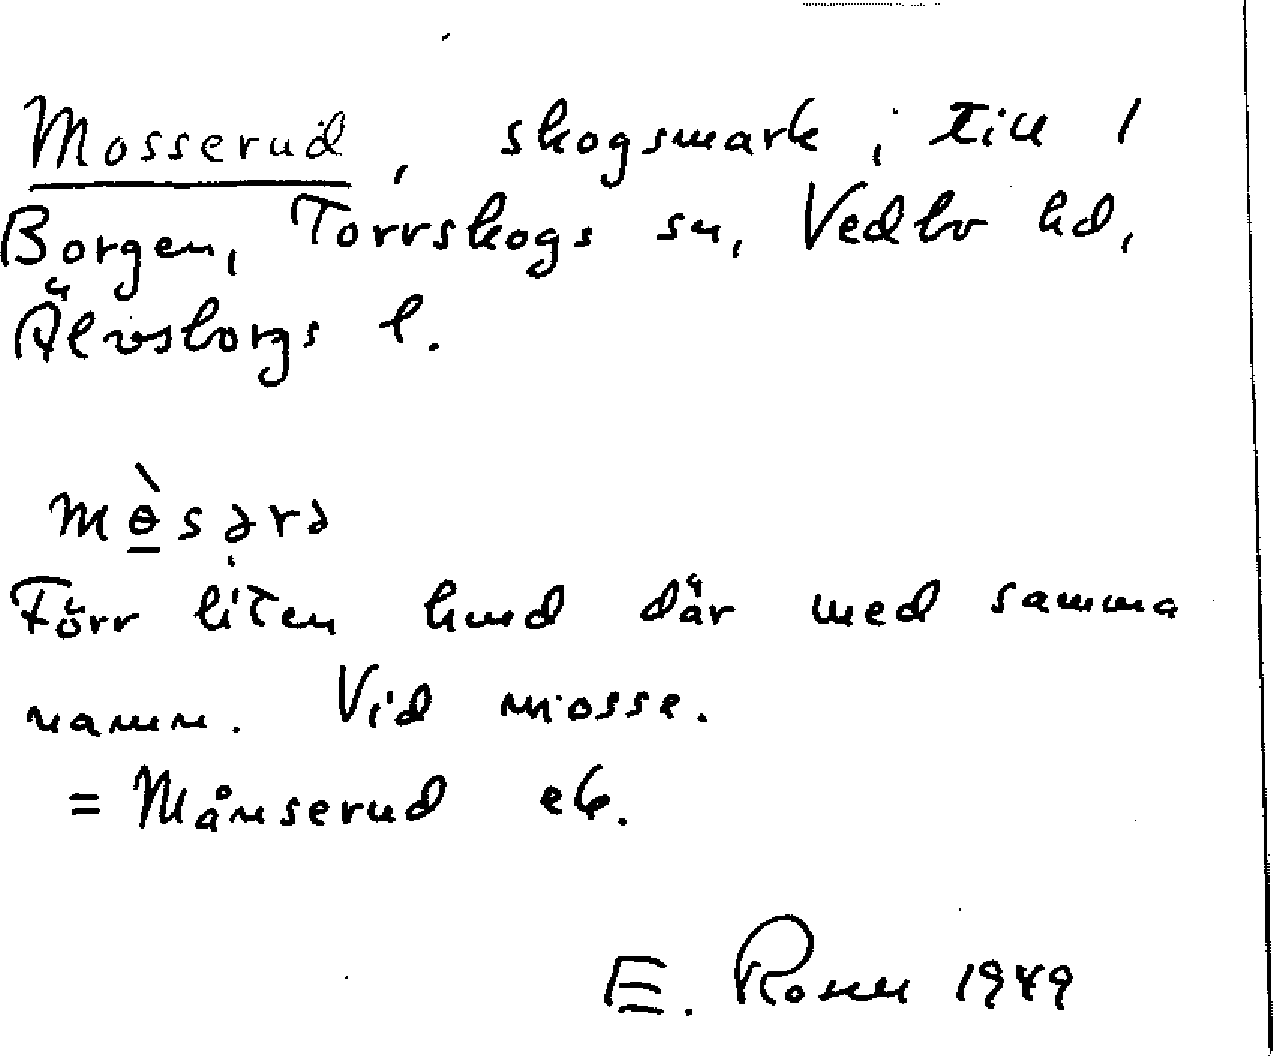 Mosserud, skogsmark, till 1
Borgen, Torrskogs sn, Vedbo hd,
Älvsborgs l.
mɵ̀sərə
Förr liten hmd där med samma
namn. Vid mosse.
= Månserud eb.
E. Rosen 1949